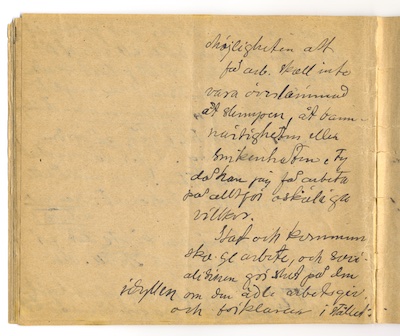 möjligheten att
få arb. skall inte
vara överlämnad
åt slumpen, åt barm-
härtigheten eller
snikenheten, ty
då kan jag få arbeta
på alltför oskäliga
villkor.
Stat och kommun
ska ge arbete, och
slut på den
idyllen om den ädle arbetsgiv.
och förklarar i stället: